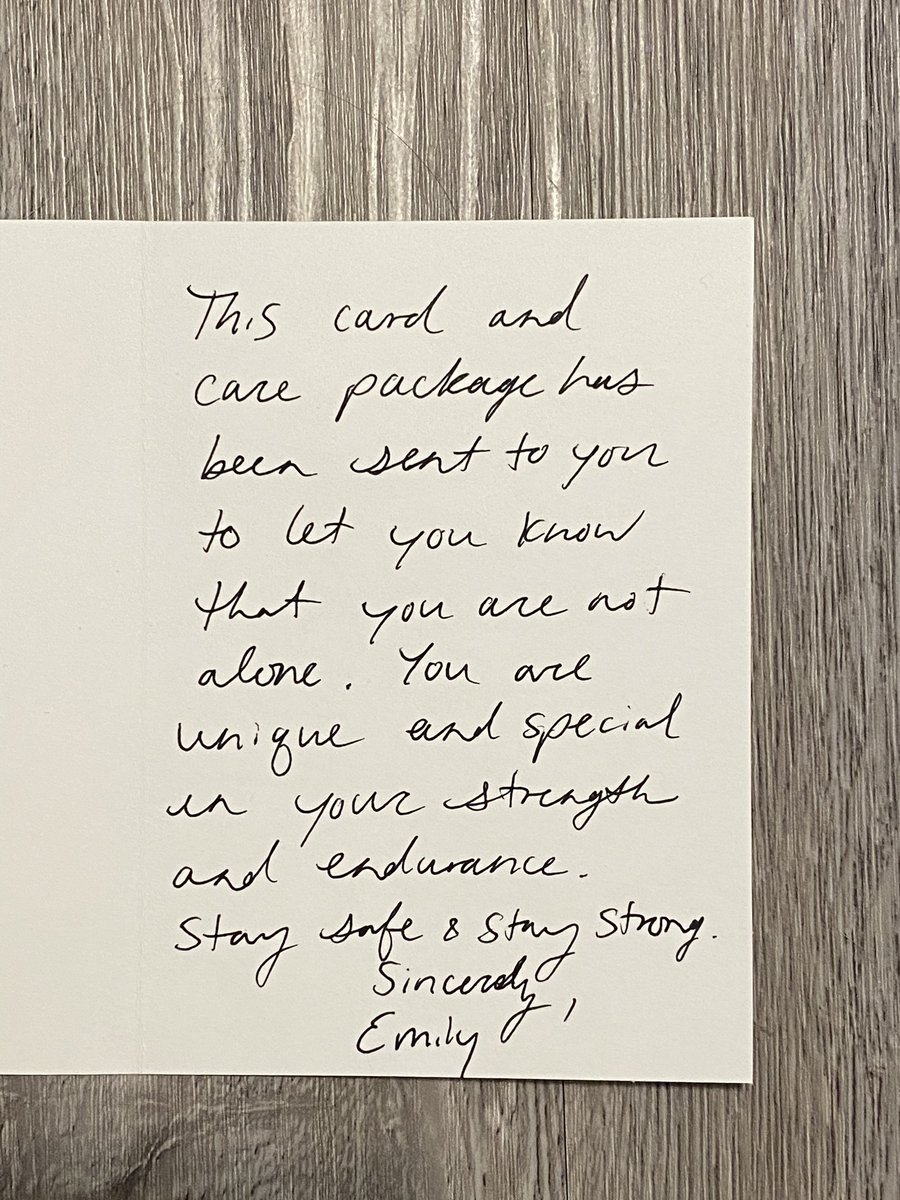 This card and
care package has
been sent to you
to let you know
that you are not
alone. You are
unique and special
in your strength
and endurance.
Stay safe & stay strong.
Sincerely,
Emily